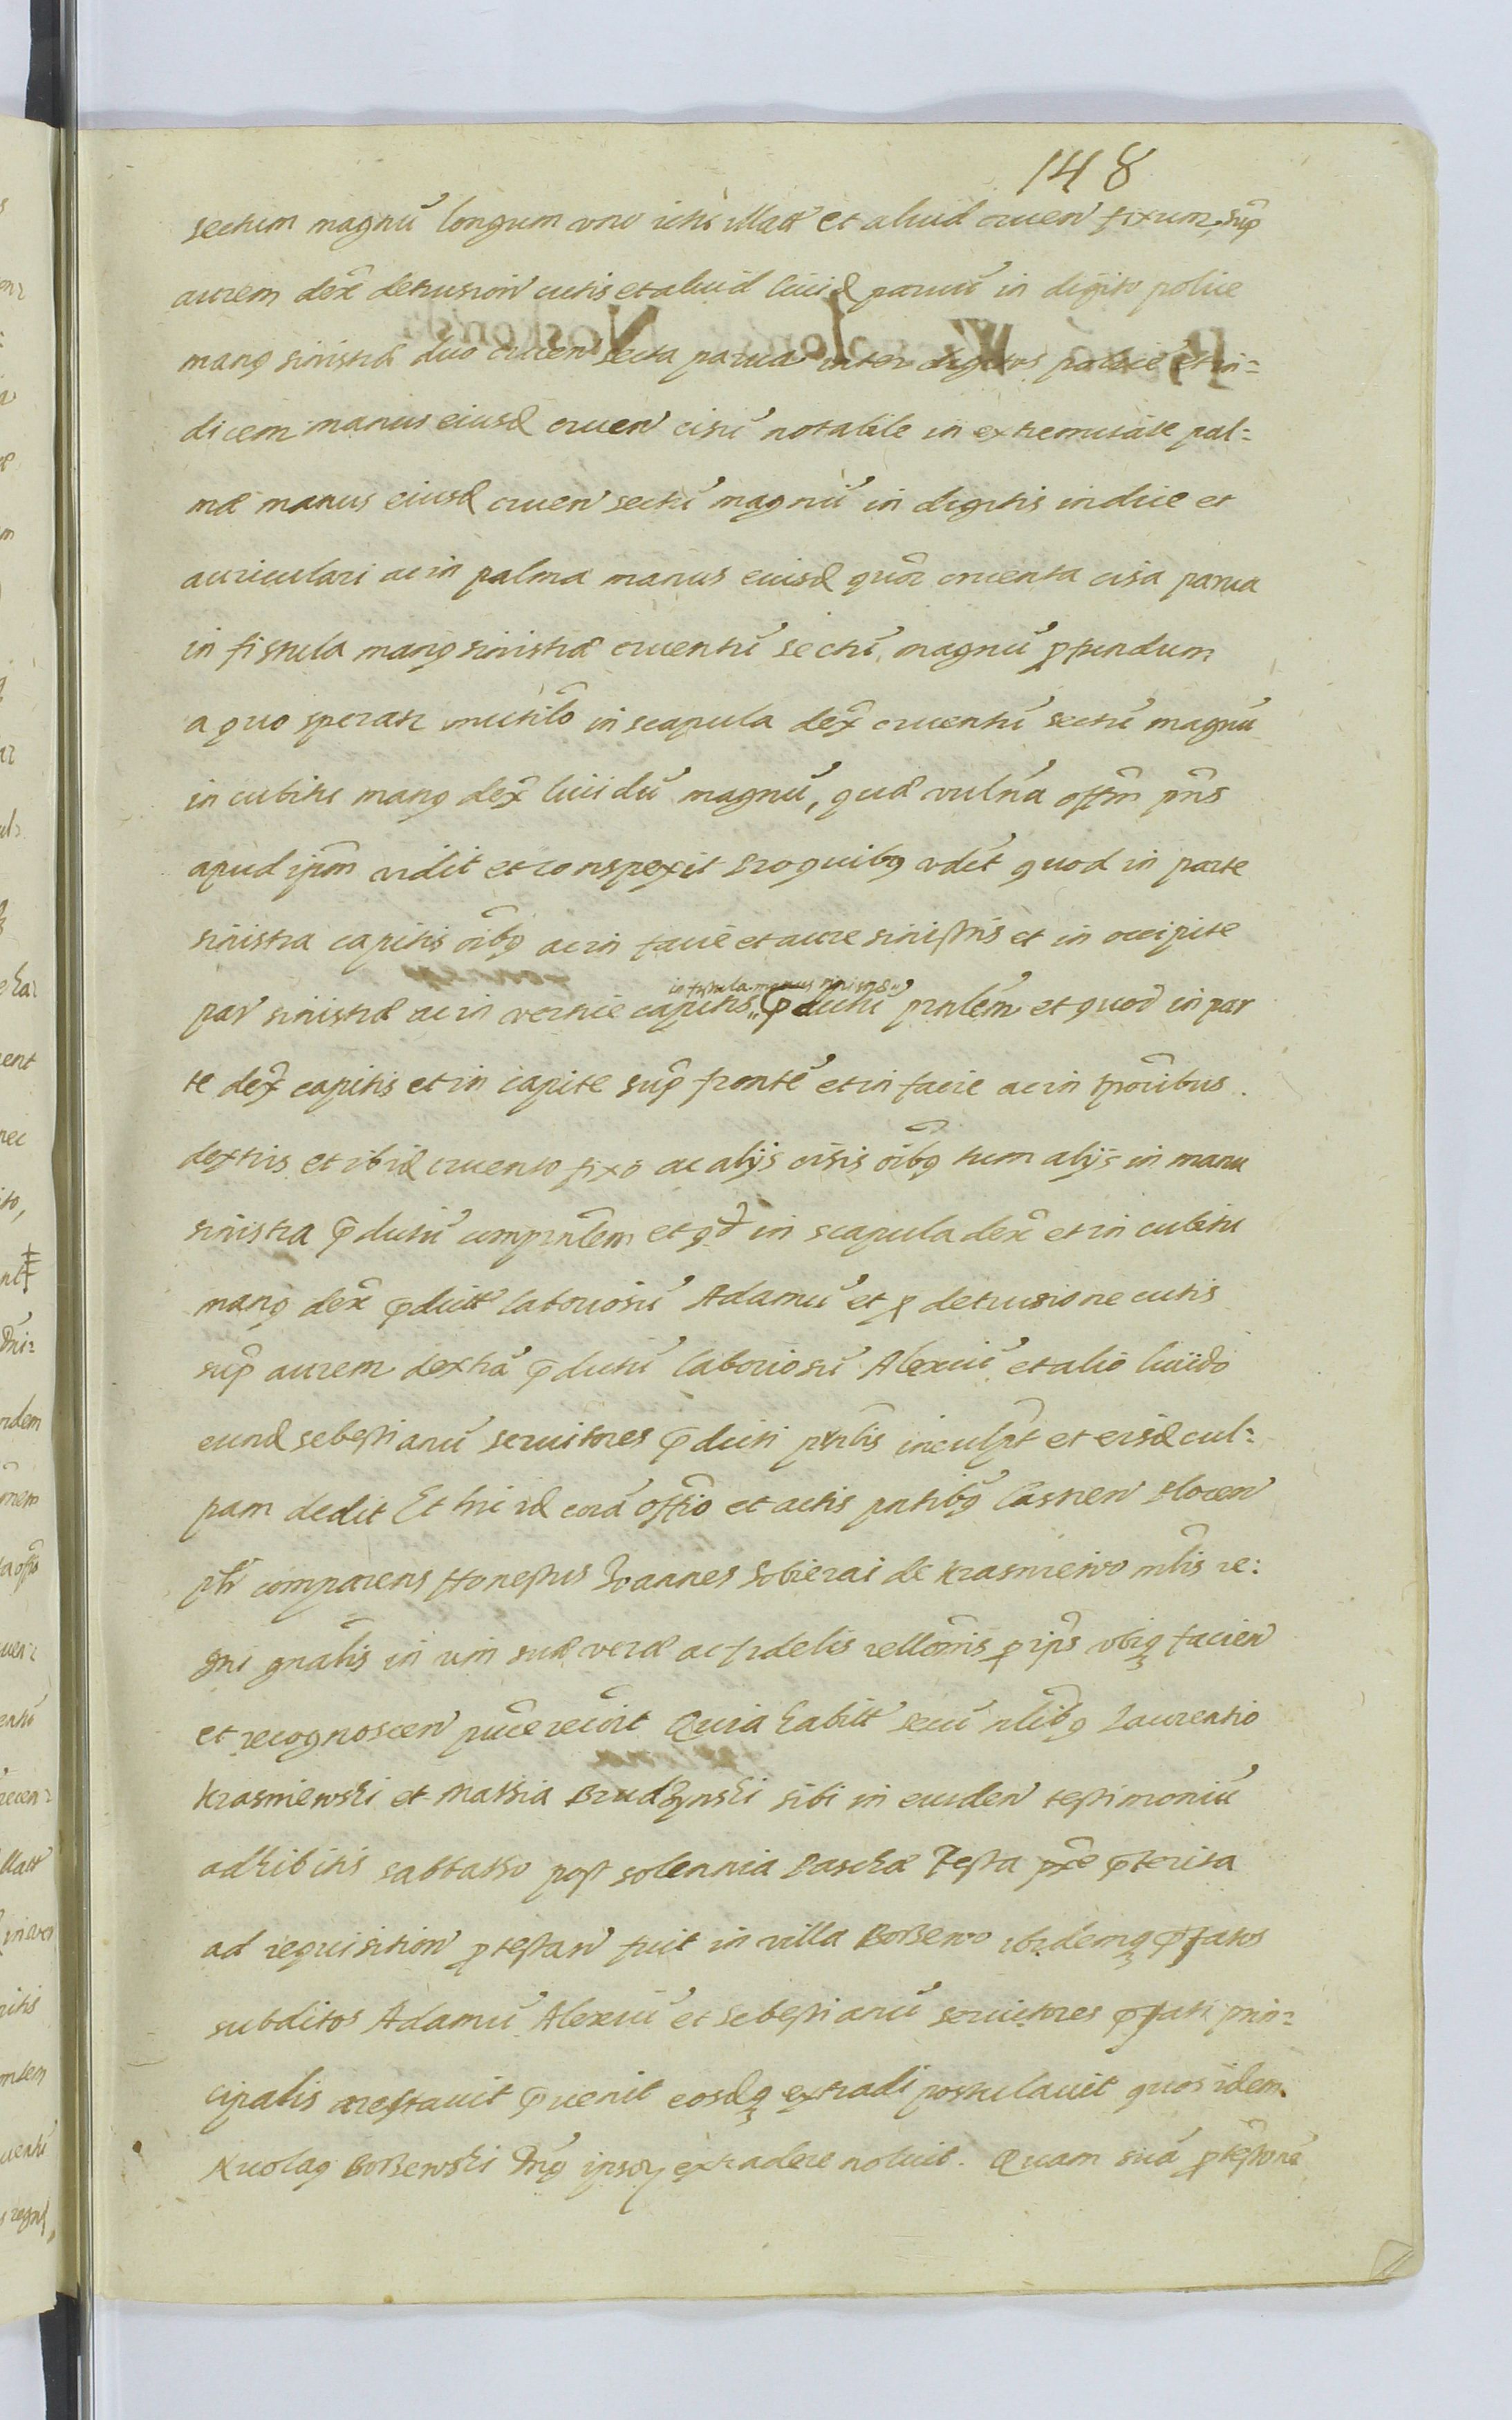 148
sectum magnū longum uno ictu illatt et aliud cruen fixum, sup
aurem dex detrusion cutis et aliud livid parvū in digito police
manq sinistræ duo cruen secta parva inter digitos police et in=
dicem manus eiusd cruen cisū notabile in extremitate pal=
mæ manus eiusd cruen sectū magnū in digitis indice et
auriculari ac in palma manus eiusd quōr cruenta cisa parva
in fistula manq sinistræ cruentū sectū magnū pfundum
a quo speratr mutilō in scapula dex cruentū sectū magnū
in cubitu manq dex lividū magnū, quæ vulnā offm pns
apud ipm vidit et conspexit Pro quibq vdet quod in parte
sinistra capitis oibq ac in facie et aure sinistris et in occipite
par sinistræ ac in vertice capitis „in fistula manus sinistræ„ pductū prnlem et quod in par
te dex capitis et in capite sup frontē et in facie ac in tporibus
dextris et ibid cruento fixo ac alijs cisis oibq tum alijs in manu
sinistra pductū comprnlem et qd in scapula dex et in cubitu
manq dex pductt laboriosū Adamū et p detrusione cutis
sup aurem dextrā pductū laboriosū Alexiū et alio livido
eund sebestianū servitores pducti prnlis inculpt et eisd cul=
pam dedit Et hic id corā offio et actis pntibq Castren
phr comparens Honestus Joannes Sobierai de Krasniewo mlis re=
gni gnalis in vim suæ veræ ac fidelis rellonis p ips ubiq facien
et recognoscen pūce recōit Quia habitt secū nlibq Laurentio
Krasniewski et Mathia Brudzynski sibi in euiden testimoniū
adhibitis sabbatho post solennia Paschæ Festa pxe pterita
ad requisition ptestan fuit in villa Borzewo ibidemq pfatos
subditos Adamū Alexiū et Sebestianū servitores pfati prin=
cipalis arestavit pvenit eosdq extradi postulavit quos idem
Nicolaq Borzewski Dnq ipsor extradere noluit. Quam suā ptestonē